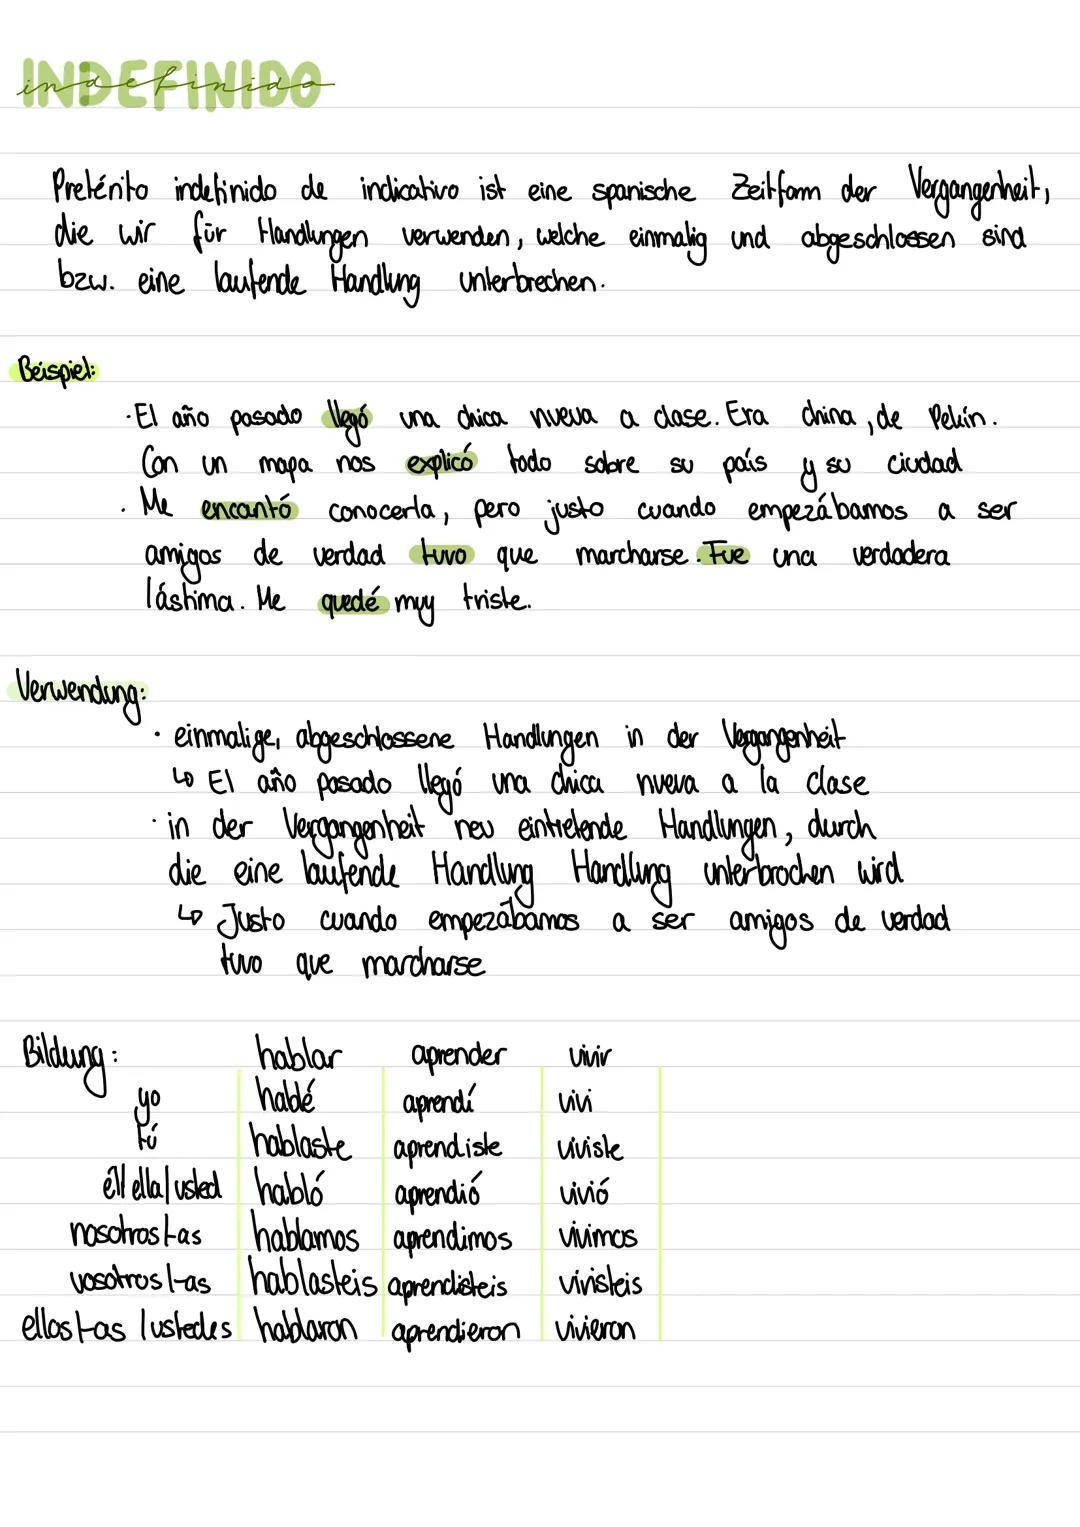 INDEFINIDO
indefinido
Pretérito indefinido de indicativo ist eine spanische Zeitform der Vergangenheit,
die wir für Handlungen verwenden, welche einmalig und abgeschlossen sind
bzw. eine laufende Handlung unterbrechen.
Beispiel:
· El año pasado llegó una chica nueva a clase. Era china, de Pekín.
Con un mapa nos explicó todo sobre su país y su ciudad
· Me encantó conocerla, pero justo cuando empezábamos a ser
amigos de verdad tuvo que marcharse. Fue una verdadera
lástima. Me quedé muy triste.
Verwendung:
· einmalige, abgeschlossene Handlungen in der Vergangenheit
↳ El año pasado llegó una chica nueva a la clase
· in der Vergangenheit neu eintretende Handlungen, durch
die eine laufende Handlung Handlung unterbrochen wird
↳ Justo cuando empezábamos a ser amigos de verdad
tuvo que marcharse
Bildung: hablar aprender vivir
yo hablé aprendí vivi
tú hablaste aprendiste viviste
él/ella/usted habló aprendió vivió
nosotros/-as hablamos aprendimos vivimos
vosotros/-as hablasteis aprendisteis vivisteis
ellos/-as/ustedes hablaron aprendieron vivieron